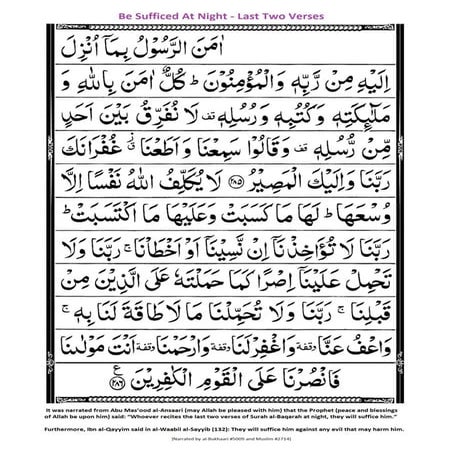 Be Sufficed At Night - Last Two Verses
اٰمَنَ الرَّسُوْلُ بِمَاۤ اُنْزِلَ
اِلَيْهِ مِنْ رَّبِّهٖ وَالْمُؤْمِنُوْنَ ؕ كُلٌّ اٰمَنَ بِاللّٰهِ وَ
مَلٰٓئِكَتِهٖ وَكُتُبِهٖ وَرُسُلِهٖ قف لَا نُفَرِّقُ بَيْنَ اَحَدٍ
مِّنْ رُّسُلِهٖ قف وَقَالُوْا سَمِعْنَا وَاَطَعْنَا ز غُفْرَانَكَ
رَبَّنَا وَاِلَيْكَ الْمَصِيْرُ ﴿۲۸۵﴾ لَا يُكَلِّفُ اللّٰهُ نَفْسًا اِلَّا
وُسْعَهَا ؕ لَهَا مَا كَسَبَتْ وَعَلَيْهَا مَا اكْتَسَبَتْ ؕ
رَبَّنَا لَا تُؤَاخِذْنَاۤ اِنْ نَّسِيْنَاۤ اَوْ اَخْطَاْنَا ۚ رَبَّنَا وَلَا
تَحْمِلْ عَلَيْنَاۤ اِصْرًا كَمَا حَمَلْتَهٗ عَلَى الَّذِيْنَ مِنْ
قَبْلِنَا ۚ رَبَّنَا وَلَا تُحَمِّلْنَا مَا لَا طَاقَةَ لَنَا بِهٖ ۚ
وَاعْفُ عَنَّا وقفة وَاغْفِرْ لَنَا وقفة وَارْحَمْنَا وقفة اَنْتَ مَوْلٰىنَا
فَانْصُرْنَا عَلَى الْقَوْمِ الْكٰفِرِيْنَ ﴿۲۸۶﴾ ع
It was narrated from Abu Mas'ood al-Ansaari (may Allah be pleased with him) that the Prophet (peace and blessings
of Allah be upon him) said: "Whoever recites the last two verses of Surah al-Baqarah at night, they will suffice him."
Furthermore, Ibn al-Qayyim said in al-Waabil al-Sayyib (132): They will suffice him against any evil that may harm him.
[Narrated by al-Bukhaari #5009 and Muslim #2714]